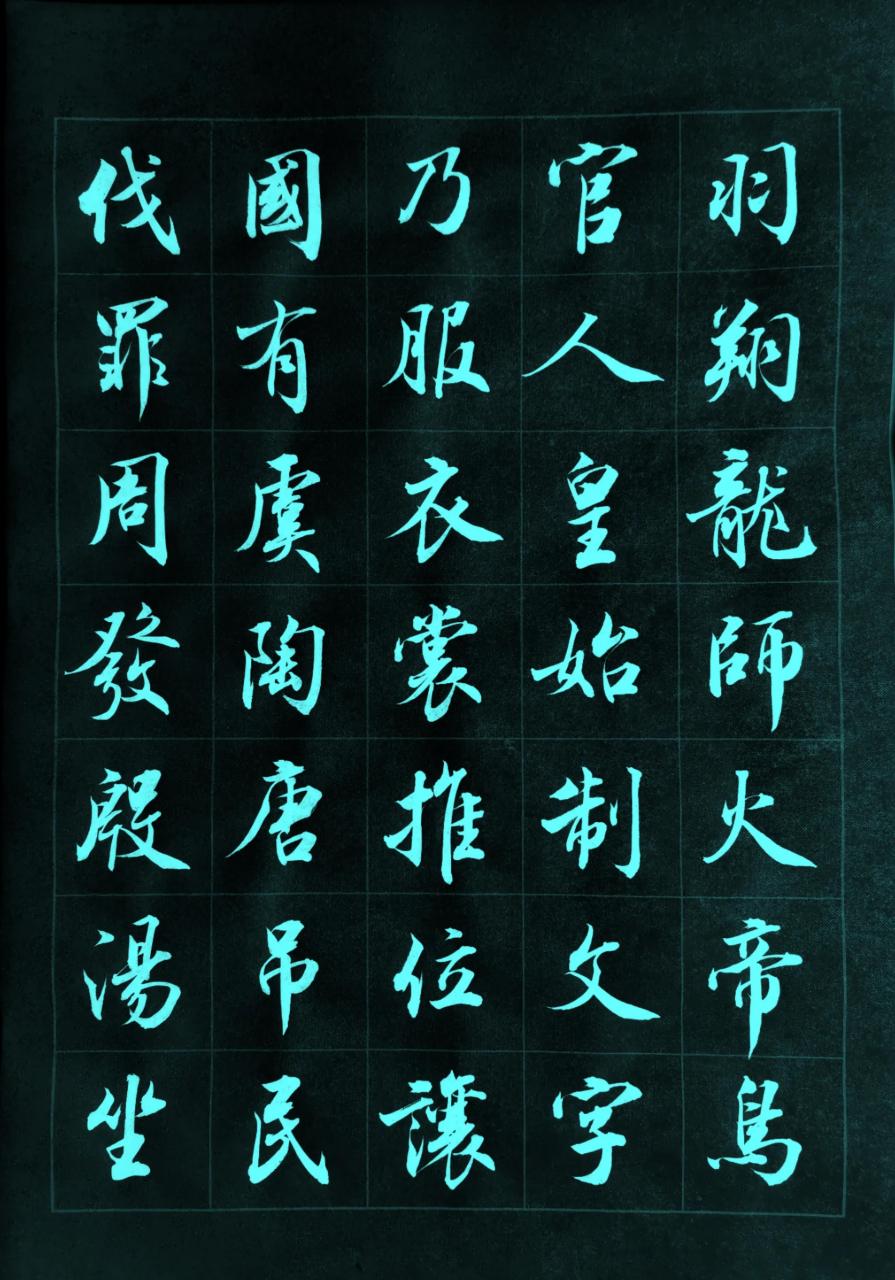 羽翔龍師火帝鳥
官人皇始制文字
乃服衣裳推位讓
國有虞陶唐吊民
伐罪周發殷湯坐